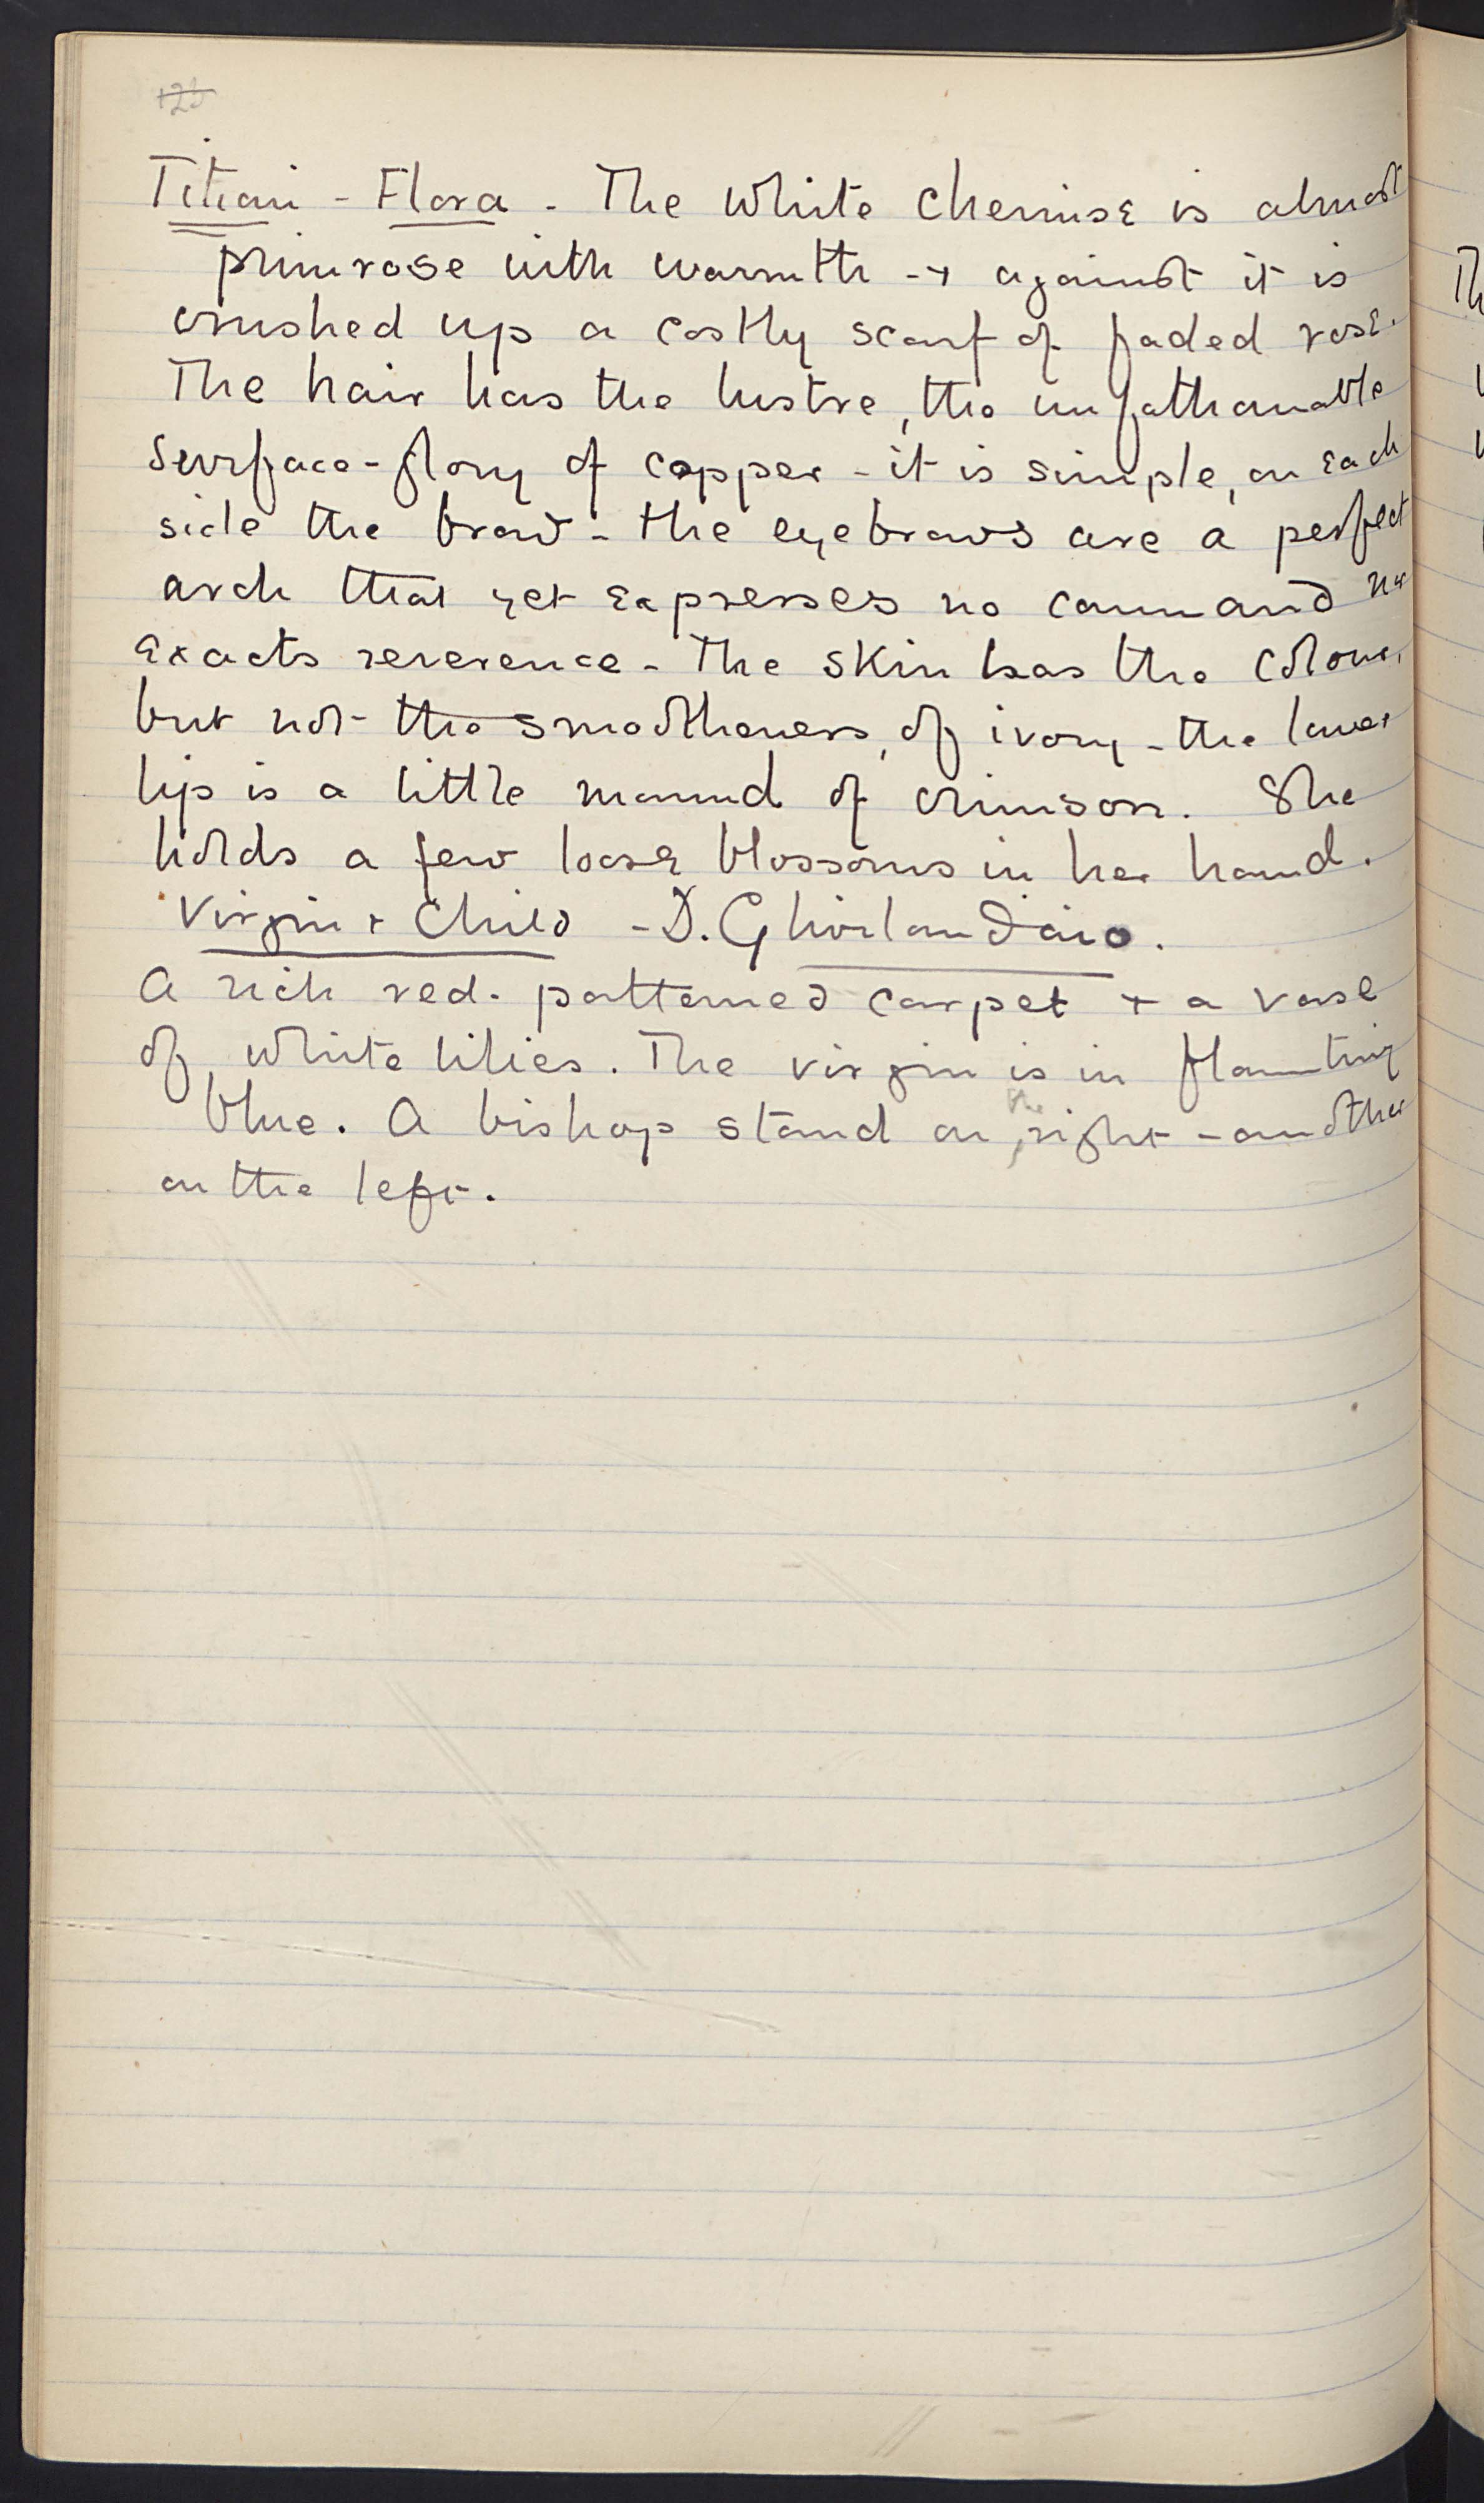 Titian - Flora - The white chemise is almost
primrose with warmth - + against it is
crushed up a costly scarf of faded rose.
The hair has the lustre, the unfathomable
surface-glory of copper - it is simple, on each
side the brow - the eyebrows are a perfect
arch that yet expresses no command nor
exacts reverence - The skin has the colour,
but not the smootheness, of ivory - the lower
lip is a little mound of crimson. She
holds a few loose blossoms in her hand.
Virgin + Child - D. Ghirlandaio.
A rich red-patterned carpet + a vase
of white lilies. The virgin is in flaunting
blue. A bishop stand on the right - another
on the left.